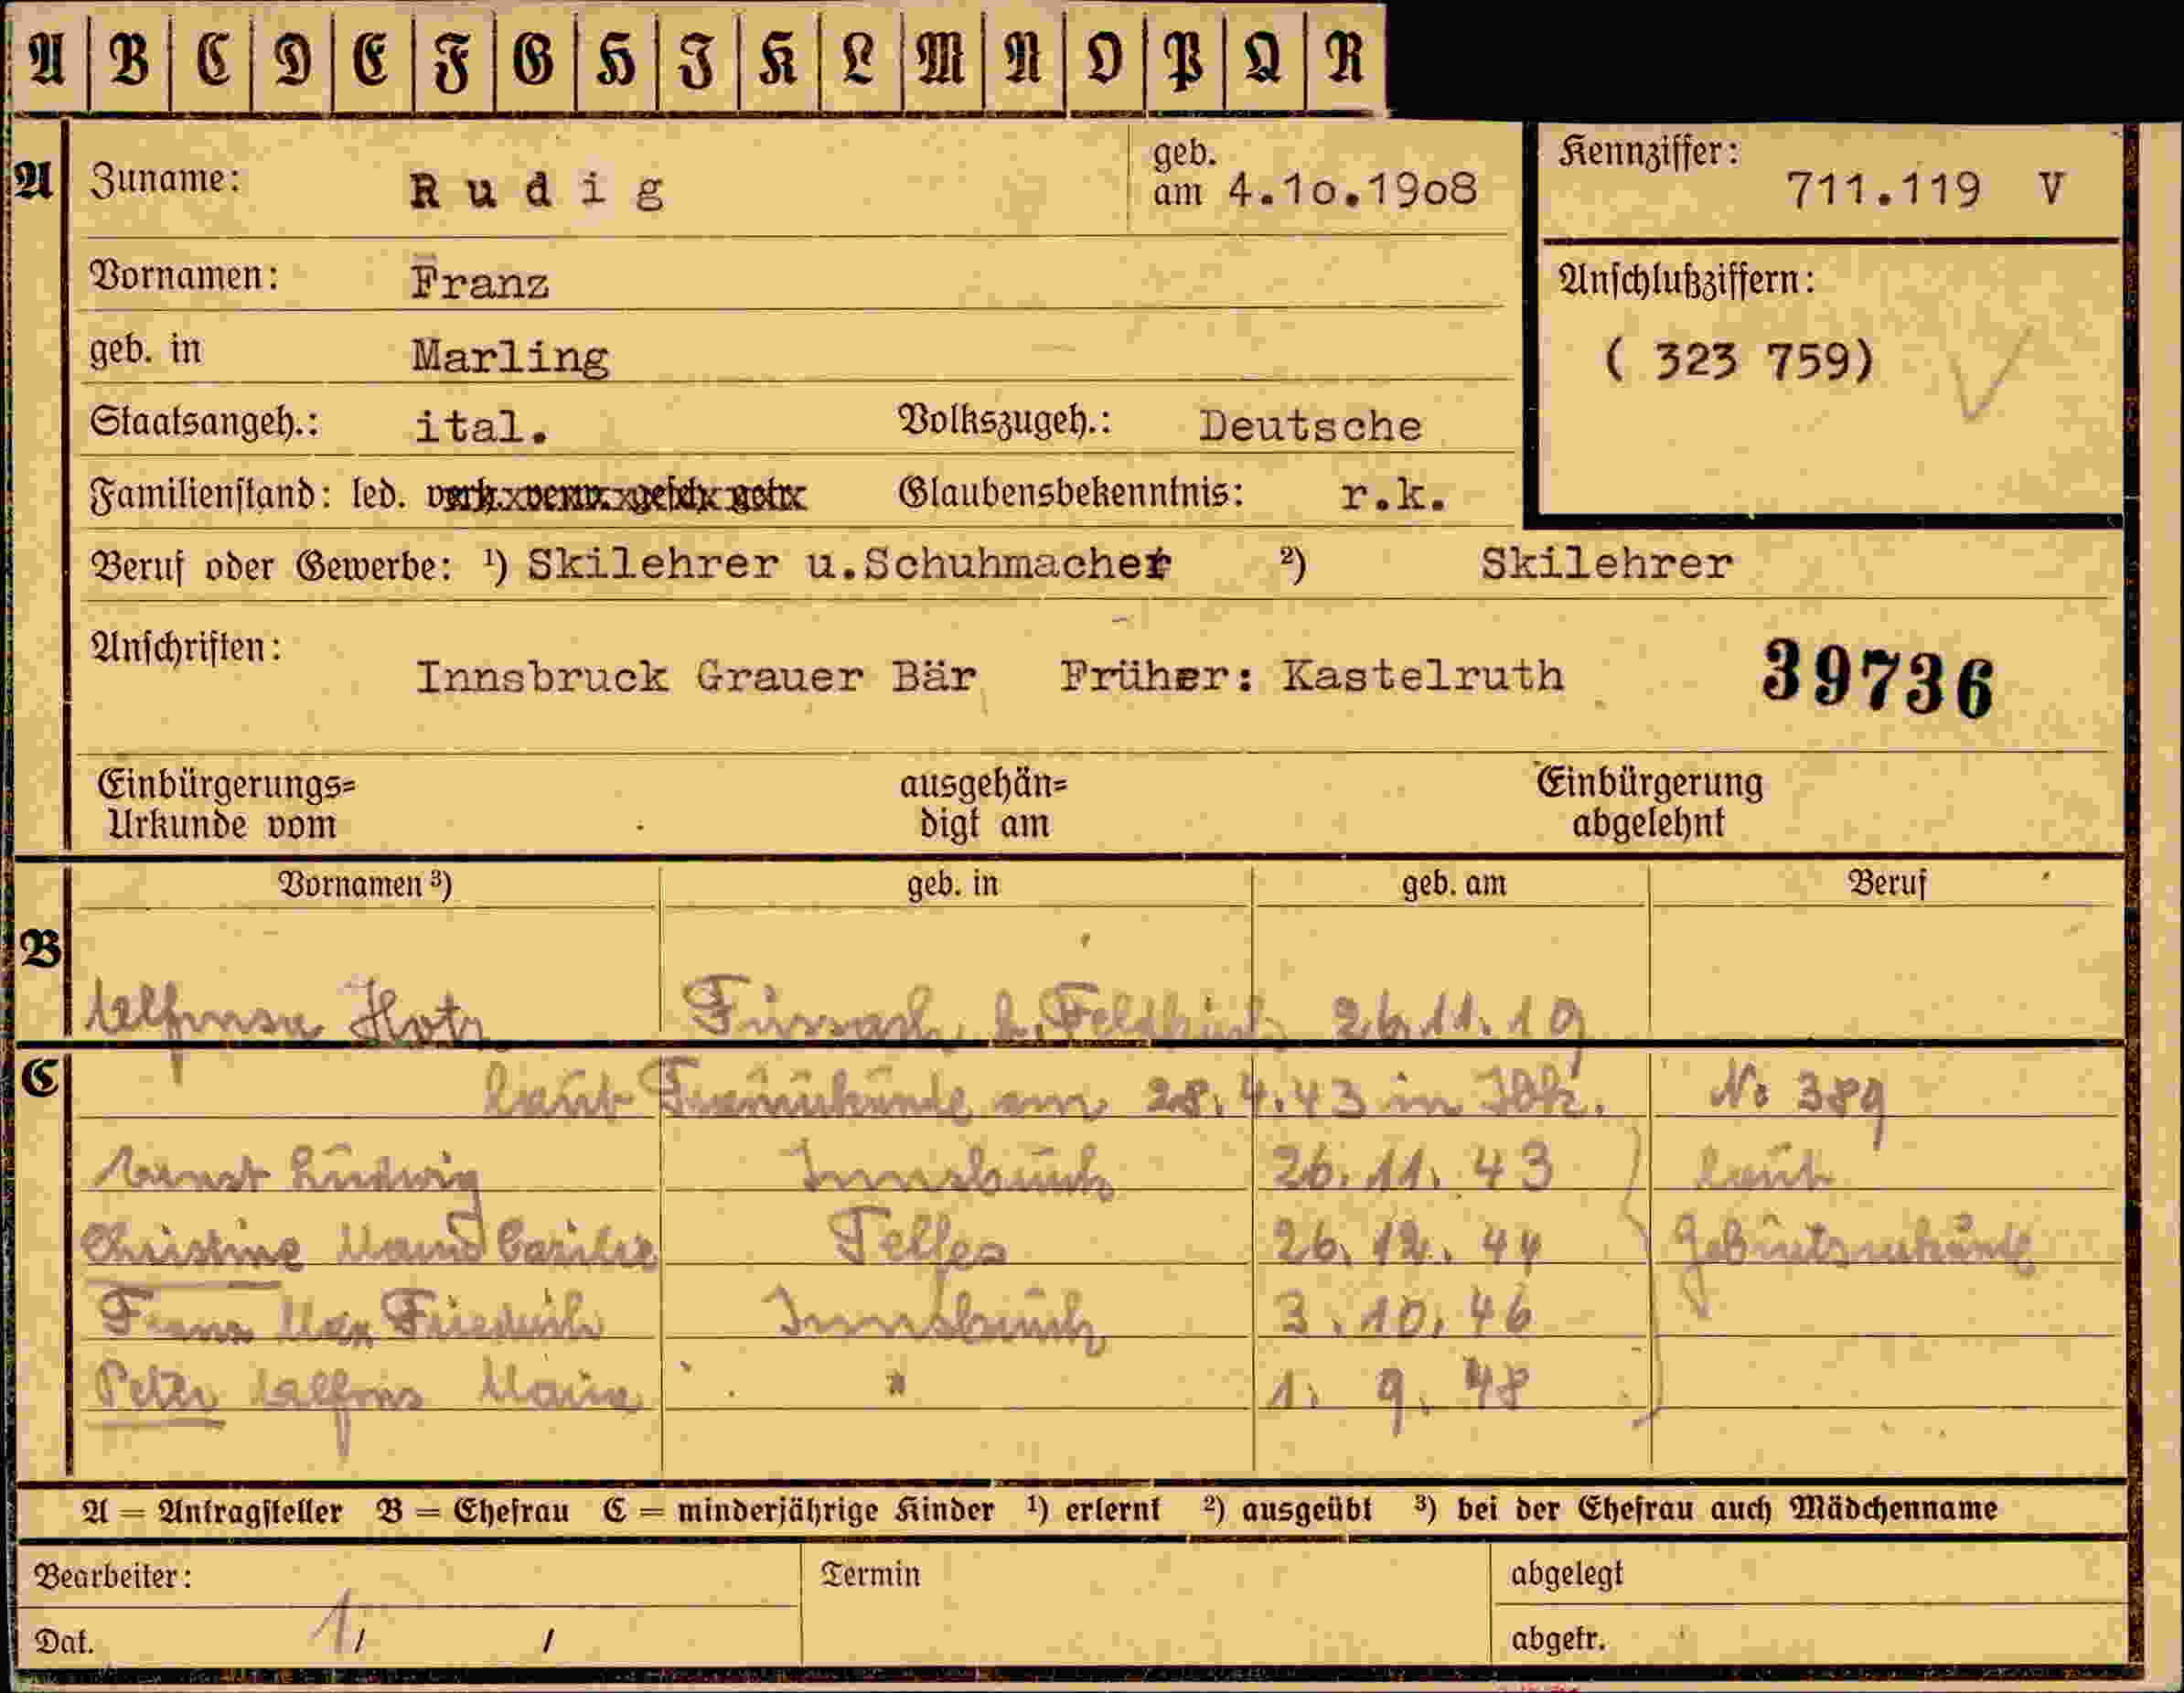 A B C D E F G H I K L M N O P Q R
A Zuname: Rudig geb. am 4.10.1908 Kennziffer: 711.119 V
Vornamen: Franz Anschlußziffern:
geb. in Marling ( 323 759)
Staatsangeh.: ital. Volkszugeh.: Deutsche
Familienstand: led. verh. verw. gesch. getr. Glaubensbekenntnis: r.k.
Beruf oder Gewerbe: ¹) Skilehrer u.Schuhmacher ²) Skilehrer
Anschriften: Innsbruck Grauer Bär Früher: Kastelruth 39736
Einbürgerungs= ausgehän= Einbürgerung
Urkunde vom digt am abgelehnt
Vornamen ³) geb. in geb. am Beruf
B
Hotz Fussach b. Feldkirch 26.11.19
C laut Trauurkunde am 28.4.43 in Ibk. No 389
Ernst Ludwig Innsbruck 26.11.43 laut
Christine Telfes 26.12.44 Geburtsurkunde
Franz Max Friedrich Innsbruck 3.10.46
Peter Alfons Maria " 1. 9. 48
A = Antragsteller B = Ehefrau C = minderjährige Kinder ¹) erlernt ²) ausgeübt ³) bei der Ehefrau auch Mädchenname
Bearbeiter: Termin abgelegt
Dat. 1, / abgetr.